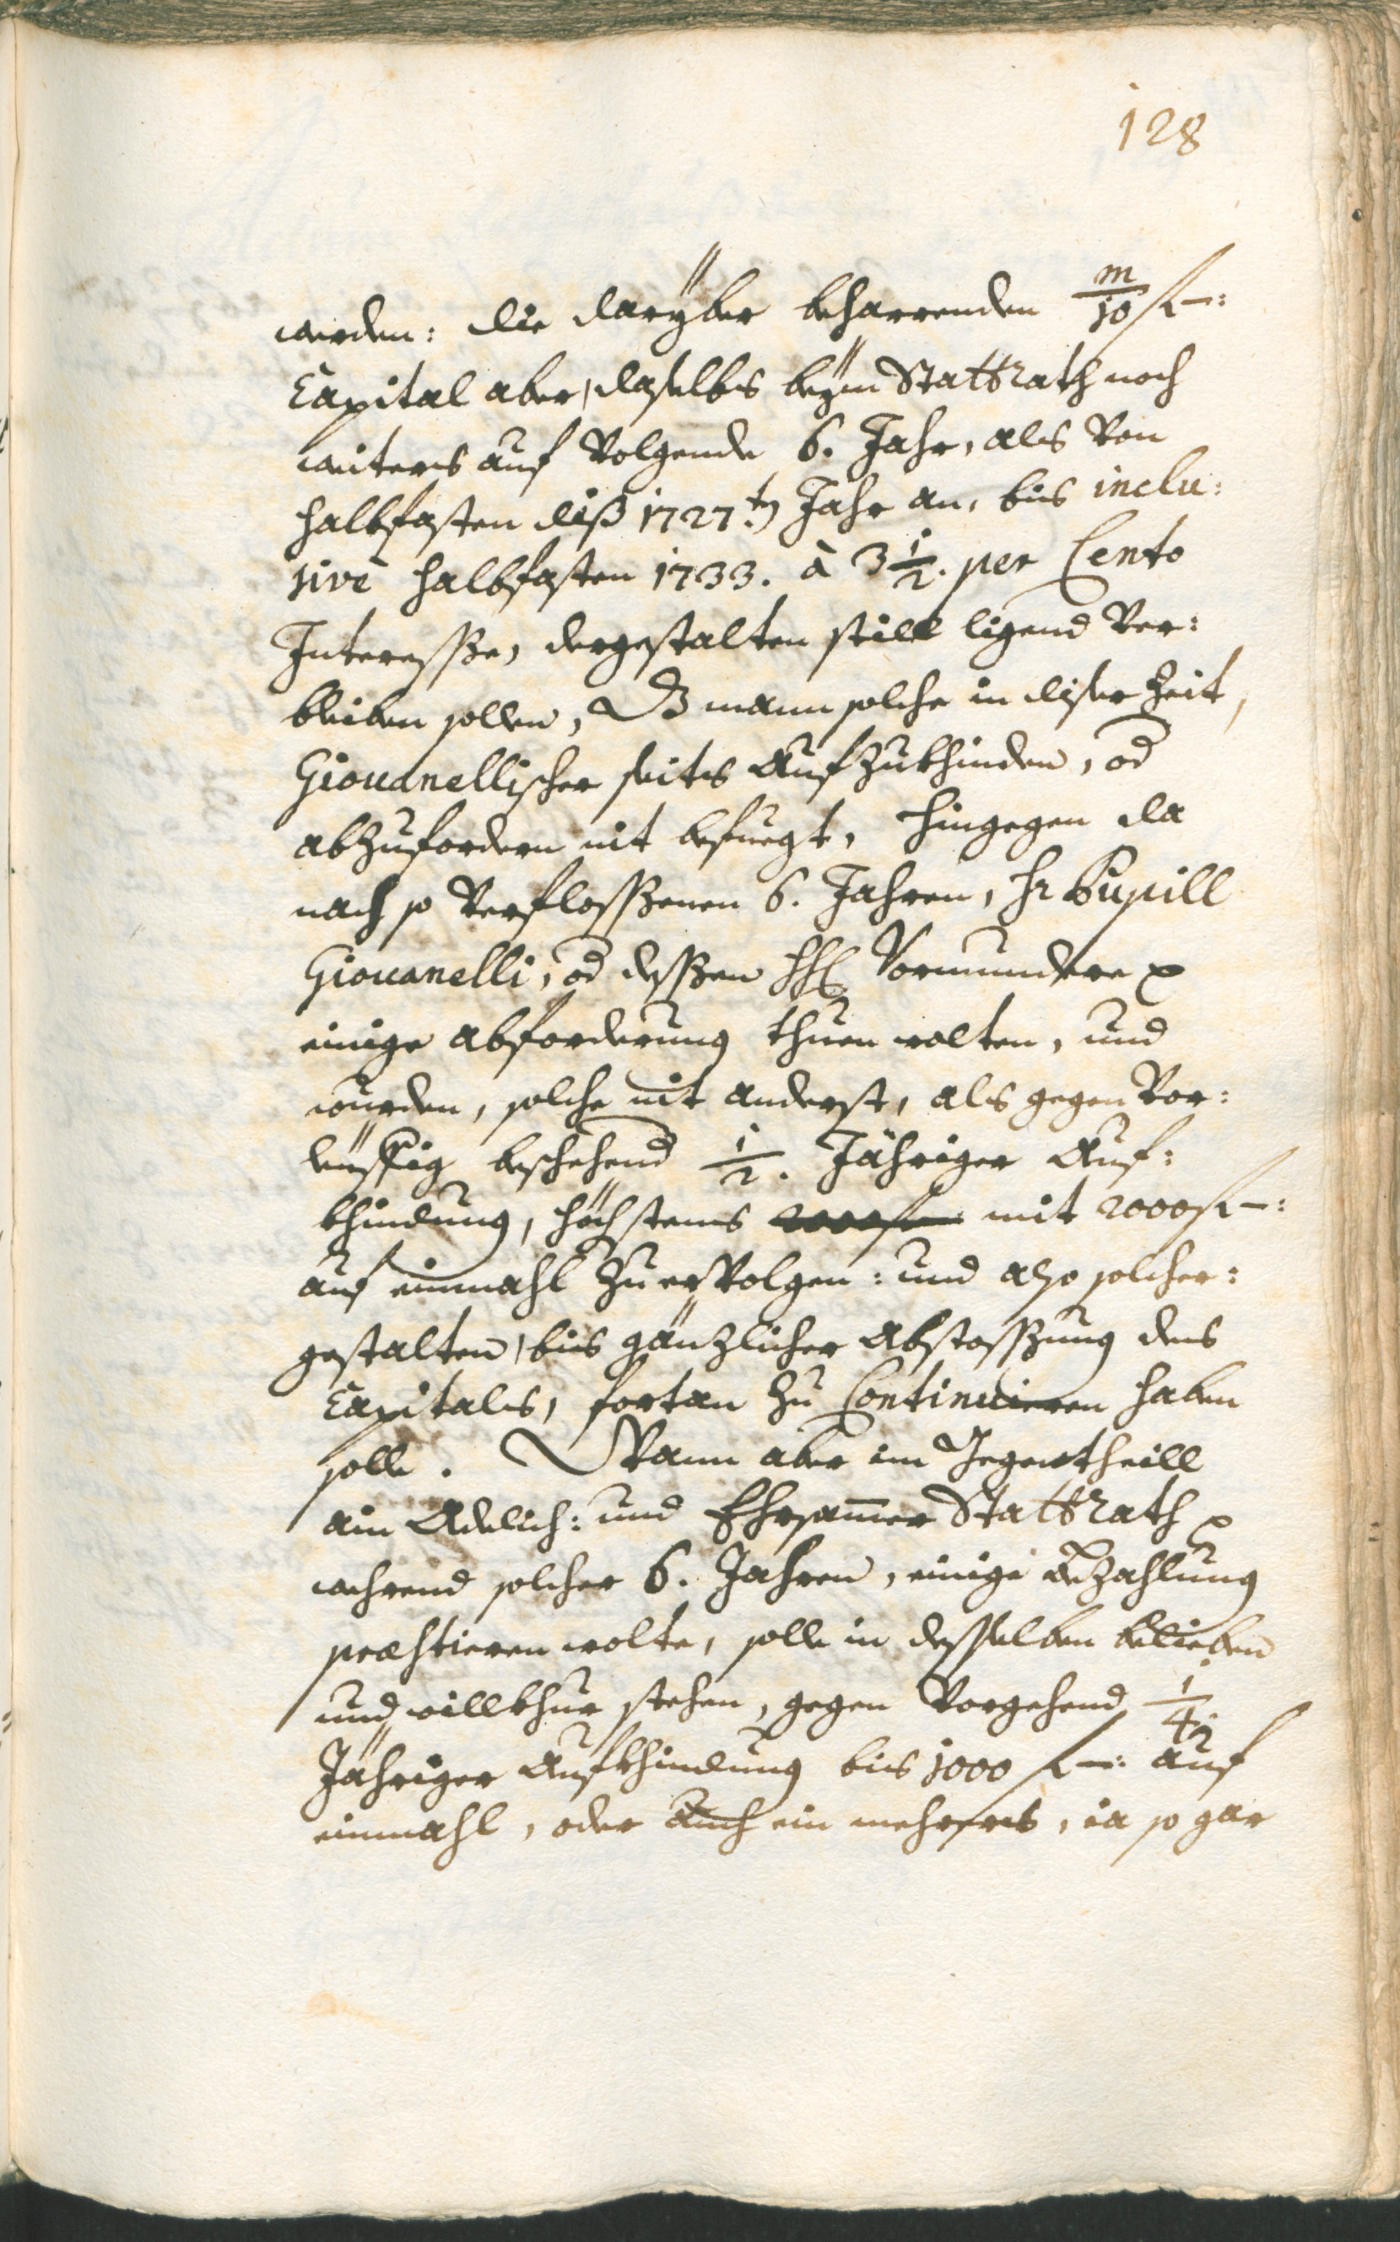 128
werden: die darÿber beharrenden m/10 f –:
Capital aber, daselbs beÿm StattRath noch
weiters auf Volgende 6. Jahr, als von
halbfasten diß 1727.tn Jahr an, bis inclu:
sivè halbfasten 1733. à 3 1/2. per Cento
Interesse, dergestalten still ligend Ver:
bleiben sollen, dß mann solche in diser Zeit,
Giouanellischer seits Aufzukhinden, od
abzufordern nit befuegt, hingegen da
nach so Verflossenen 6. Jahren, hr Pupill
Giouanelli, od dessen hhl Vormundere
einige abforderung thuen wolten, und
wurden, solche nit anderst, als gegen Vor:
leüffig beschehend 1/2. Jähriger Auf:
khindung, höchstens 2000 f mit 2000 f –:
auf einmahl zu erVolgen: und also solcher:
gestalten, bis gänzlicher Abstossung des
Capitals, fortan zu Continuieren haben
solle. Wann aber im Gegentheill
ain Adelich: und Ehrsamer StattRath
wehrend solcher 6. Jahren, einige Bezahlung
præstieren wolte, solle in desselben belieben
und willkhur stehen, gegen Vorgehend 1/4.
Jähriger Aufkhindung bis 1000 f –: auf
einmahl, oder auch ein mehrers, ia so gar